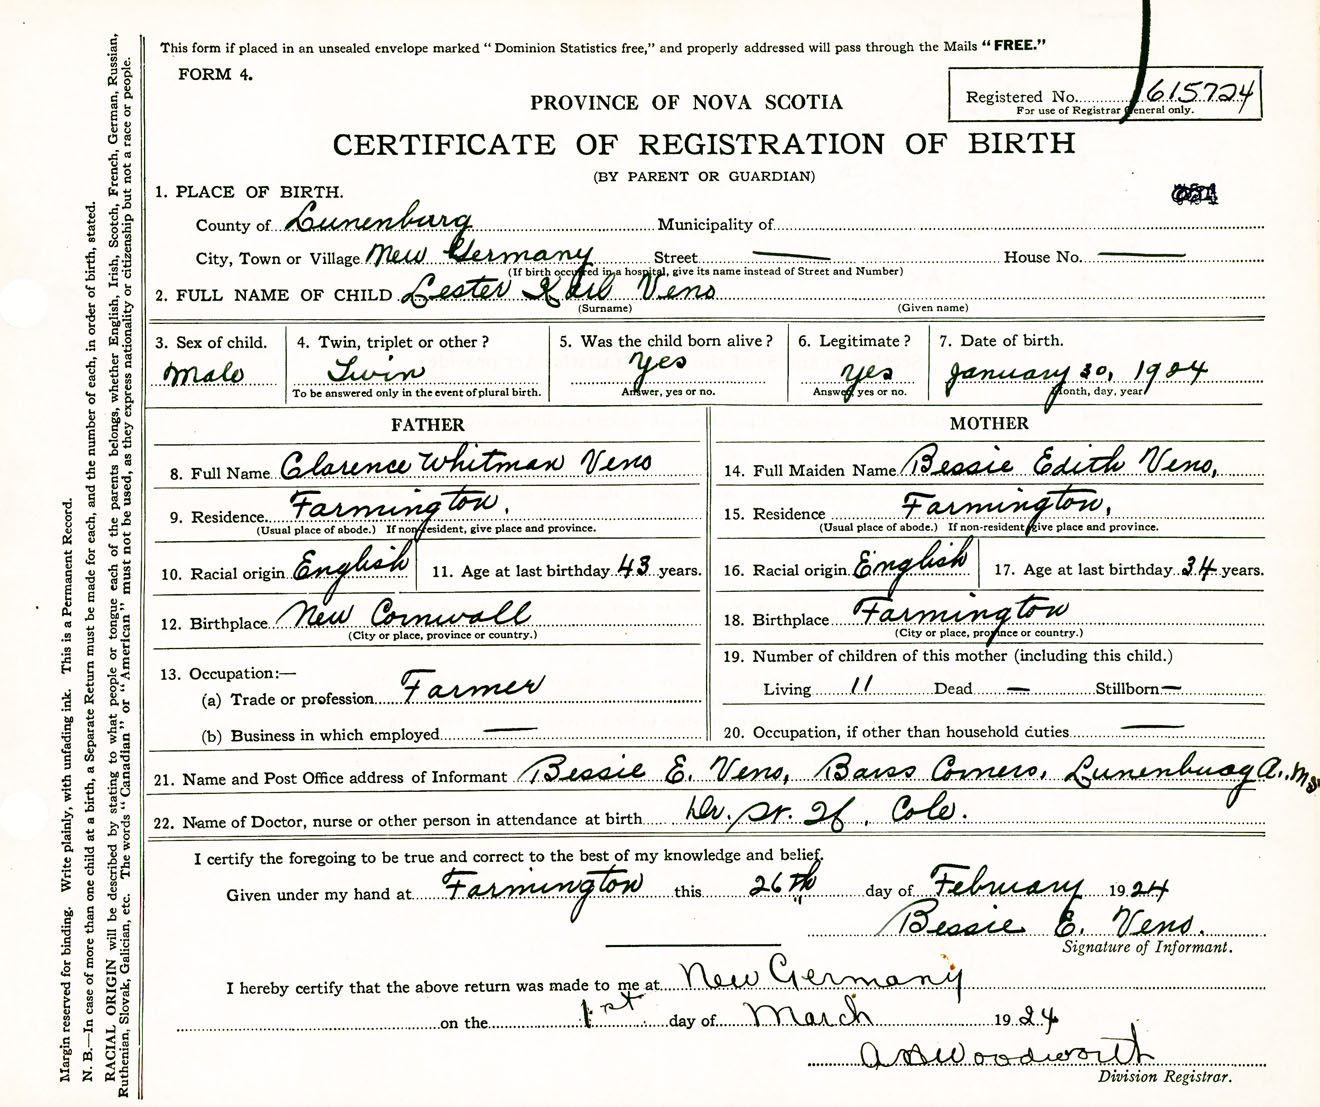 This form if placed in an unsealed envelope marked "Dominion Statistics free," and properly addressed will pass through the Mails "FREE."
FORM 4.
Registered No. 615724
For use of Registrar General only.
PROVINCE OF NOVA SCOTIA
CERTIFICATE OF REGISTRATION OF BIRTH
(BY PARENT OR GUARDIAN)
1. PLACE OF BIRTH.
County of Lunenburg Municipality of
City, Town or Village New Germany Street — House No. —
(If birth occurred in a hospital, give its name instead of Street and Number)
2. FULL NAME OF CHILD Lester Karl Veno
(Surname) (Given name)
3. Sex of child. 4. Twin, triplet or other? 5. Was the child born alive? 6. Legitimate? 7. Date of birth.
Male Twin Yes Yes January 30, 1924
To be answered only in the event of plural birth. Answer, yes or no. Answer, yes or no. Month, day, year
FATHER MOTHER
8. Full Name Clarence Whitman Veno 14. Full Maiden Name Bessie Edith Veno,
9. Residence Farmington. 15. Residence Farmington,
(Usual place of abode.) If non-resident, give place and province. (Usual place of abode.) If non-resident, give place and province.
10. Racial origin English 11. Age at last birthday 43 years. 16. Racial origin English 17. Age at last birthday 34 years.
12. Birthplace New Cornwall 18. Birthplace Farmington
(City or place, province or country.) (City or place, province or country.)
13. Occupation:— 19. Number of children of this mother (including this child.)
(a) Trade or profession Farmer Living 11 Dead — Stillborn —
(b) Business in which employed — 20. Occupation, if other than household duties —
21. Name and Post Office address of Informant Bessie E. Veno, Barss Corners, Lunenburg
22. Name of Doctor, nurse or other person in attendance at birth Dr. Cole.
I certify the foregoing to be true and correct to the best of my knowledge and belief.
Given under my hand at Farmington this 26th day of February 1924
Bessie E. Veno.
Signature of Informant.
I hereby certify that the above return was made to me at New Germany
on the 1st day of March 1924
Woodworth
Division Registrar.
Margin reserved for binding. Write plainly, with unfading ink. This is a Permanent Record.
N. B.—In case of more than one child at a birth, a Separate Return must be made for each, and the number of each, in order of birth, stated.
RACIAL ORIGIN will be described by stating to what people or tongue each of the parents belongs, whether English, Irish, Scotch, French, German, Russian,
Ruthenian, Slovak, Galician, etc. The words "Canadian" or "American" must not be used, as they express nationality or citizenship but not a race or people.